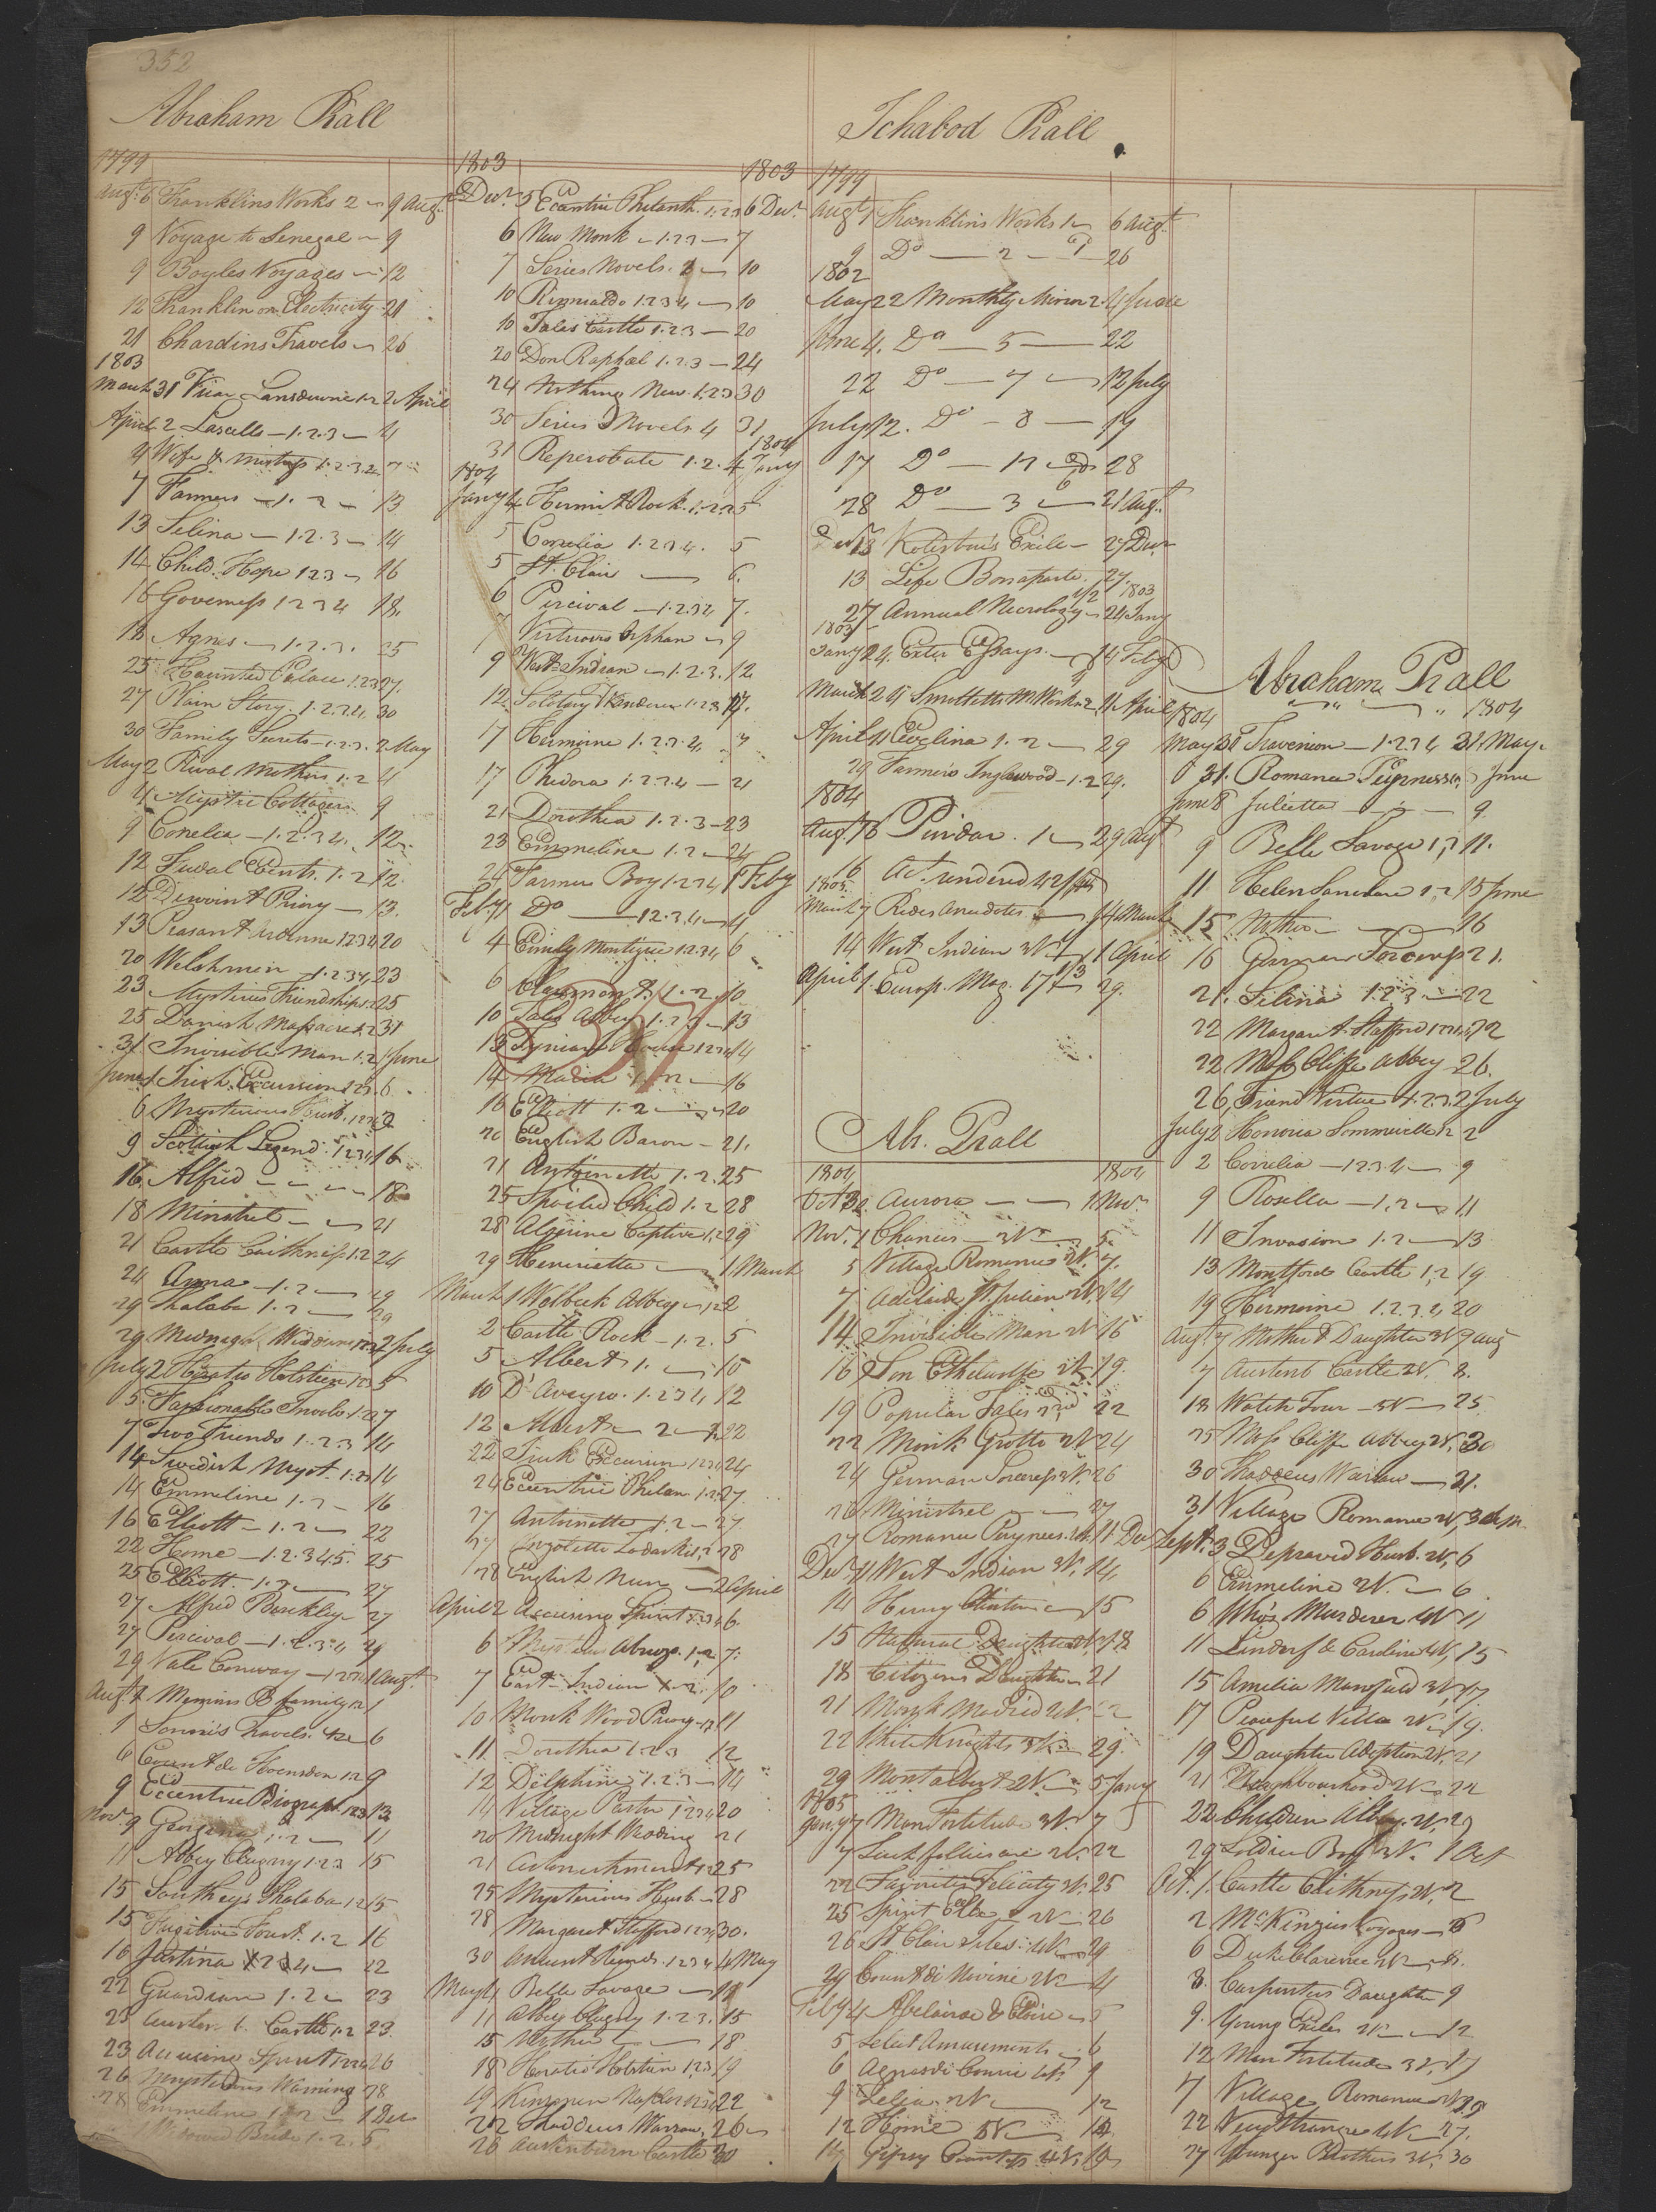 352
Abraham Prall
1799
Augt. 6 Franklins Works 2 9 Augt.
9 Voyage to Senegal 9
9 Boyles Voyages 12
12 Franklin on Electricity 21
21 Chardins Travels 26
1803
March 31 Lansdowne 1.2 2 April
April 2 Lascells 1.2.3 4
4 Wife & Mistress 1.2.3.4 7
7 Farmers 1.2 13
13 Selina 1.2.3 14
14 Child. Hope 1 2 3 16
16 Governess 1 2 3 4 18
18 Agnes 1.2.3. 25
25 Haunted Palace 1.2.3 27.
27 Plain Story. 1.2.3.4 30
30 Family Secrets 1.2.3. 2 May
May 2 Rival Mothers 1.2 4
4 Mystic Cottager 9
9 Cornelia 1.2.3.4. 12
12 Feudal Events. 1.2 12.
12 Derwint Priory 13.
13 Peasant Ardenne 1234 20
20 Welshmen 1.2 3 4, 23
23 Mysterious Friendship 1.2 25
25 Danish Massacre 1.2 31
31 Invisible Man 1.2 1 June
June 1 Irish Excursion 123. 6.
6 Mysterious Husb. 1234 9
9 Scottish Legend. 1234 16
16 Alfred 18
18 Minstrel 21
21 Castle Caithness 1.2 24
24 Anna 1.2 29
29 Thalaba 1.2 29
29 Midnight Weddings 123 2 July
July 2 Horatio Holstein 1 2 3 5
5 Fashionable Involv. 1.2.3 7
7 Two Friends 1.2.3 14
14 Swedish Myst. 1.2.3 14
14 Emmeline 1.2 16
16 Elliott 1.2 22
22 Home 1.2.3 4 5. 25
25 Elliott. 1.2 27
27 Alfred Berkley 27
27 Percival 1.2.3.4 29
29 Vale Conway 1234 1 Augt.
Augt. 1 Memoirs B family 1.2 1
1 Sonnini's Travels. 6
6 Count de Hoensdern 1.2 9
9 Eccentric Biograph. 123 13
Novr. 9 Georgina 1.2 11
11 Abbey Clugny 1 2 3 15
15 Southeys Thalaba 1.2 15
15 Fugitive Forest 1.2 16
16 Justina 1 2 3 4 22
22 Guardian 1.2 23
23 Austen b. Castle 1.2 23.
23 Accusing Spirit 1234 26
26 Mysterious Warning 28
28 Emmeline 1.2 1 Dec
Widowed Bride 1.2. 5.
1803 1803
Decr. 5 Eccentric Philanth. 1.23 6 Decr.
6 New Monk 1.2.3 7
7 Series Novels. 3 10
10 Rinnaldo 1.2.3.4 10
10 Tales Castle 1.2.3 20
20 Don Raphael 1.2.3 24
24 Nothing New. 1.2.3 30
30 Series Novels 4 31
31 Reperobate 1.2. 4 Jany 1804
1804
Jany 4 Hermit Rock. 1.2.3 5
5 Cornelia 1.2 3 4. 5
5 St. Clair 6.
6 Percival 1.2.3 4 7.
7 Virtuous Orphan 9
9 West Indian 1.2.3. 12
12 Solitary Wanderer 1.2.3 17.
17 Hermione 1.2.3.4 7
17 Phedora 1.2.3.4 21
21 Dorothea 1.2.3 23
23 Emmeline 1.2 24
24 Farmers Boy 1.2 3 4 1 Feby
Feby 1 Do 12.3.4 4
4 Emily Montigue 12.3 4 6
6 Claremont. 1.2 10
10 Tales Abbey 1.2.3 13
13 House 1 2 3 4 14
14 Maria 1.2 16
16 Elliott 1.2 20
20 English Baron 21.
21 Antoinette 1.2. 25
25 Spoiled Child 1.2 28
28 Algerine Captive 1.2 29
29 Henrietta 1 March
March 1 Wolbeck Abbey 1.2 2
2 Castle Rock 1.2. 5
5 Albert 1. 10
10 D'Aveyro. 1.2 3 4 12
12 Albert 2 22
22 Irish Excursion 123 24
24 Eccentric Philan. 1.23 27.
27 Antoinette 1.2 27
27 Ladaskie 1.2 28
28 English Nun 2 April
April 2 Accusing Spirit 1.2.3.4 6.
6 Mysteries Abruzo. 1.2 7.
7 East Indian 1.2. 10
10 Monk Wood Priory 1.2 11
11 Dorothea 1 2 3 12
12 Delphine 1.2.3 14
14 Village Pastor 1234 20
20 Midnight Wedding 21
21 Astonishment 1.2 25
25 Mysterious Husb. 28
28 Margaret Stafford 1234 30.
30 Ancient Records 1.2 3 4 4 May
May 4 Belle Savage 11
11 Abbey Clugny 1.2.3. 15
15 Mystery 18
18 Horatio Holstein 1.23 19
19 Kinsmen Naples 1234 22
22 Thaddeus Warsaw, 26
26 Austinburn Castle 30
Ichabod Prall
1799
Augt 1 Franklins Works 1 6 Augt.
9 Do 2 26
1802
May 22 Monthly Mirror 2. 4 June
June 4. Do 5 22
22 Do 7 12 July
July 12. Do 8 17
17 Do 17 28
28 Do 3 21 Augt.
Decr 13 Kotzebue's Exile 27 Decr
13 Life Bonaparte. 27.
27 Annual Necrology 24 Jany 1803
1803
Jany 24. Exter Essays 14 Feby
March 24 Smolletts M Works 2, 11 April
April 11 Evelina 1.2 29
29 Farmers Inglewood 1.2 29.
1804
Augt. 16 Pindar. 1 29 Augt
6 Act. rendered
1805
March 7 Rides Anecdotes 14 March
14 West Indian 3V. 1 April
April 1. Europ. Mag. 17 29.
Ab. Prall
1804 1804
Oct 30 Aurora 1 Novr.
Novr. 1 Chances 5
5 Village Romance 2V. 7.
7 Adelaide St. Julian 2V. 14
14 Invisible Man 2V 16
16 Son Ethelwolfe 2V. 19.
19 Popular Tales 22
22 Monk Grotto 2V 24
24 German Sorceress 3V. 26
26 Minstrel 27
27 Romance Pyrynees. 4V. 11 Dec
Decr 11 West Indian 3V. 14
14 Henry Clintonic 15
15 Natural Daughter 2V. 18
18 Citizens Daughter 21
21 Monk Madrid 2V. 22
22 White Knights 3V. 29.
29 Montalbert 2V. 5 Jany
1805
Jany 7 Man Fortitude 3V. 7
7 Luck follies are 2V. 22
22 Favorite Feliciaty 2V. 25
25 Spirit Elbe 2V. 26
26 St Clair Isles. 4V. 29
29 Count di Novini 2V 4
Feby 4 Abelairae & Eloise 5
5 Select Amusements 6
6 Agnes di Courci 4V. 9
9 Lelia 2V. 12
12 Home 5V. 14.
14 Gipsey Countess 4V. 19
Abraham Prall
1804 1804
May 30 Travenion 1.2 3 4 31 May.
31. Romance Pyrynees 8 June
June 8 Julietta 9
9 Belle Savage 1,2 11.
11 Helen Sinclair 1,2 15 June
15 Mother 16
16 German Sorceress 21.
21. Selina 1.2.3. 22
22 Margaret Stafford 1234, 22
22 Moss Cliffe Abbey 26.
26, Friend Virtue 1.2.3. 2 July
July 2 Honoria Sommerville 1.2 2
2 Cornelia 1 2 3 4 9
9 Rosella 1.2 11
11 Invasion 1.2 13
13 Montford Castle 1,2 19
19 Hermoine 1.2.3.4, 20
Augt. 7 Mother & Daughter 3V 9 Aug
7 Austenb Castle 2V. 8.
18 Watch Tower 5V 25.
25 Moss Cliffe Abbey 2V. 30
30 Thaddeus Warsaw 31.
31 Village Romance 2V. 3 Sep.
Sept. 3 Depraved Husb. 2V. 6
6 Emmeline 2V. 6
6 Who's Murderer 4V 11
11 Lindorf & Caroline 3V. 15
15 Amelia Mansfield 3V. 17.
17 Peaceful Villa 2V. 19.
19 Daughter Adoption 2V. 21
21 Neighbourhood 2V. 22
22 Children Abbey. 2V. 29
29 Soldier Boy 3V. 1 Oct
Oct. 1. Castle Caithness 2V. 2
2 McKinzies Voyages 6
6 Duke Clarence 4V. 8.
8. Carpenters Daughter 9
9. Young Exiles 12
12 Man Fortitude 3V. 17
7 Village Romance 2V 22
22 Very Strange 4V 27.
27 Younger Brothers 3V. 30